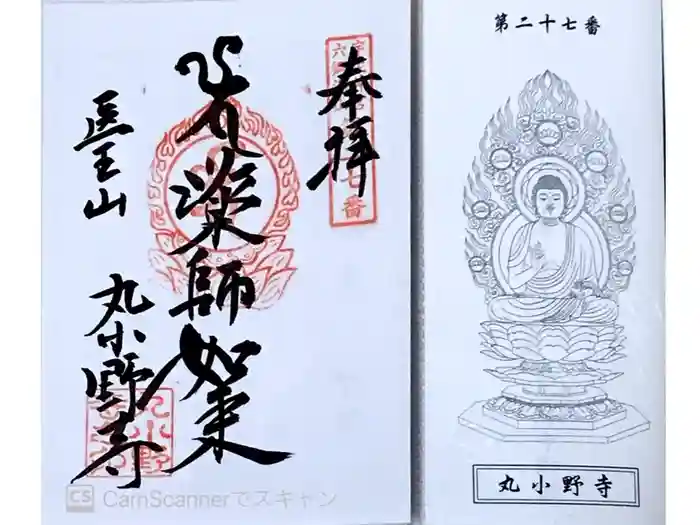 奉拝
薬師如来
医王山
丸小野寺
第二十七番
丸小野寺
CS CamScannerでスキャン